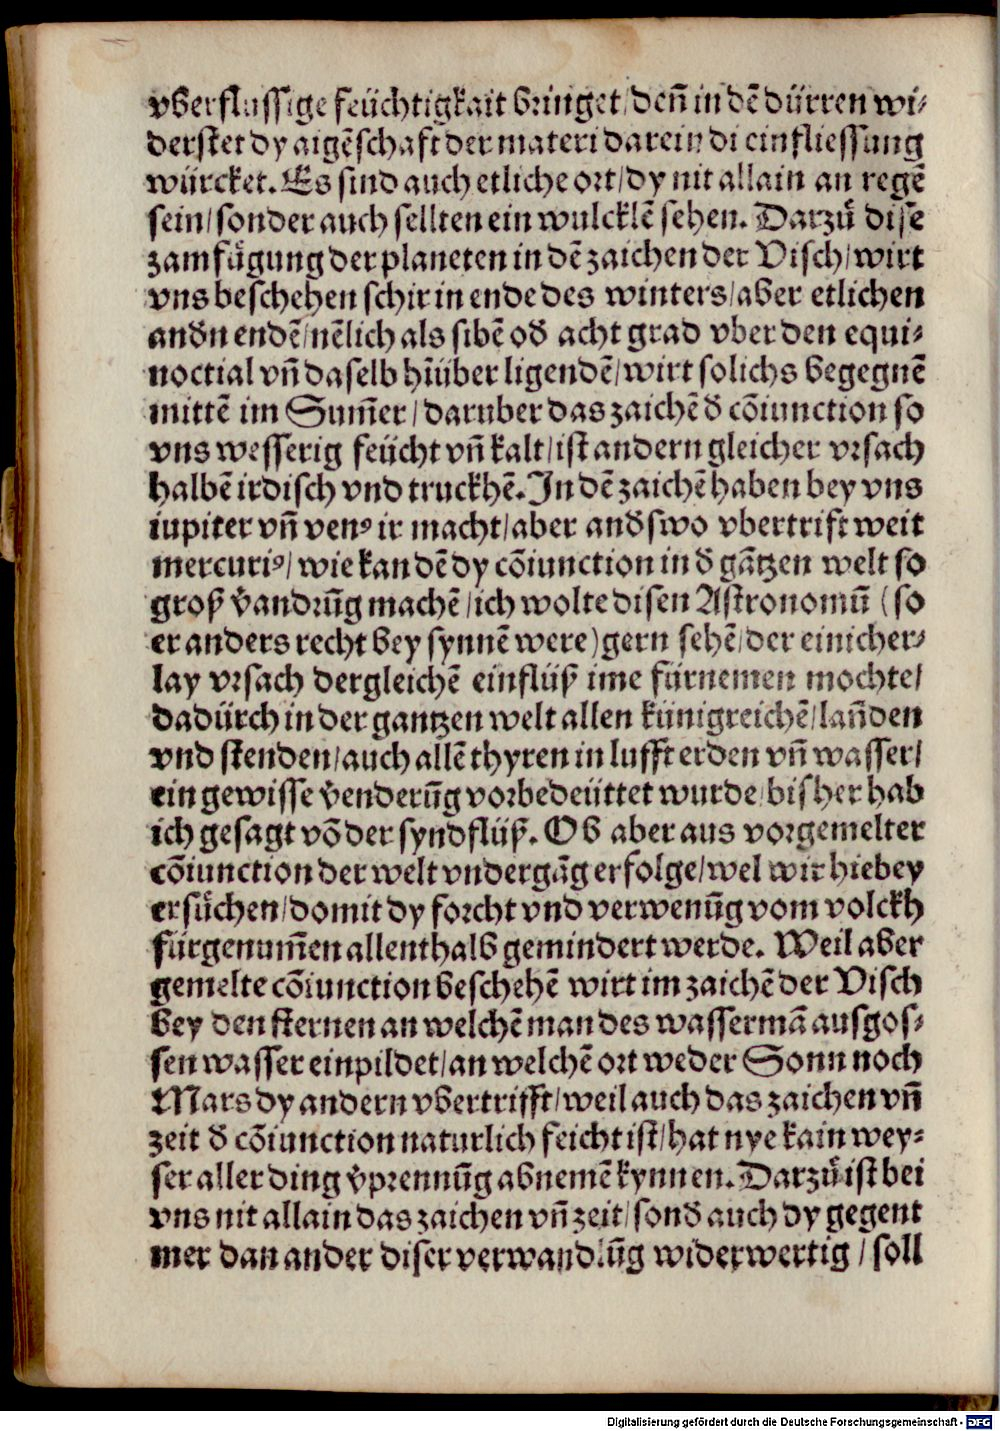 vberflussige feüchtigkait bringet/ deñ in dẽ dürren wi⸗
derstet dy aigẽschaft der materi darein di einfliessung
würcket. Es sind auch etliche ort/ dy nit allain an regẽ
sein/ sonder auch sellten ein wulcklẽ sehen. Darzů dise
zamfůgung der planeten in dẽ zaichen der Visch/ wirt
vns beschehen schir in ende des winters/ aber etlichen
andň endẽ/ nẽlich als sibẽ oď acht grad vber den equi⸗
noctial vñ daselb hĩüber ligendẽ/ wirt solichs begegnẽ
mittẽ im Sum̃er/ daruber das zaichẽ ď cõiunction so
vns wesserig feücht vñ kalt/ ist andern gleicher vrsach
halbẽ irdisch vnd truckhẽ. In dẽ zaichẽ haben bey vns
iupiter vñ venꝰ ir macht/ aber anďswo vbertrift weit
mercuriꝰ/ wie kan dẽ dy cõiunction in ď gãtzen welt so
groß v̈andrũg machẽ/ ich wolte disen Astronomũ (so
er anders recht bey synnẽ were) gern sehẽ/ der einicher⸗
lay vrsach dergleichẽ einflüß ime fürnemen mochte/
dadürch in der gantzen welt allen künigreichẽ/ lañden
vnd stenden/ auch allẽ thyren in lufft erden vñ wasser/
ein gewisse v̈enderũg vorbedeüttet wurde/ bisher hab
ich gesagt võ der syndflüß. Ob aber aus vorgemelter
cõiunction der welt vndergãg erfolge/ wel wir hiebey
ersůchen/ domit dy forcht vnd verwenũg vom volckh
fürgenum̃en allenthalb gemindert werde. Weil aber
gemelte cõiunction beschehẽ wirt im zaichẽ der Visch
bey den sternen an welchẽ man des wassermã ausgos⸗
sen wasser einpildet/ an welchẽ ort weder Sonn noch
Mars dy andern vbertrifft/ weil auch das zaichen vñ
zeit ď cõiunction naturlich feicht ist/ hat nye kain wey⸗
ser aller ding v̈prennũg abnemẽ kynnen. Darzů ist bei
vns nit allain das zaichen vñ zeit/ sonď auch dy gegent
mer dan ander diser verwandlũg widerwertig / soll
Digitalisierung gefördert durch die Deutsche Forschungsgemeinschaft - DFG